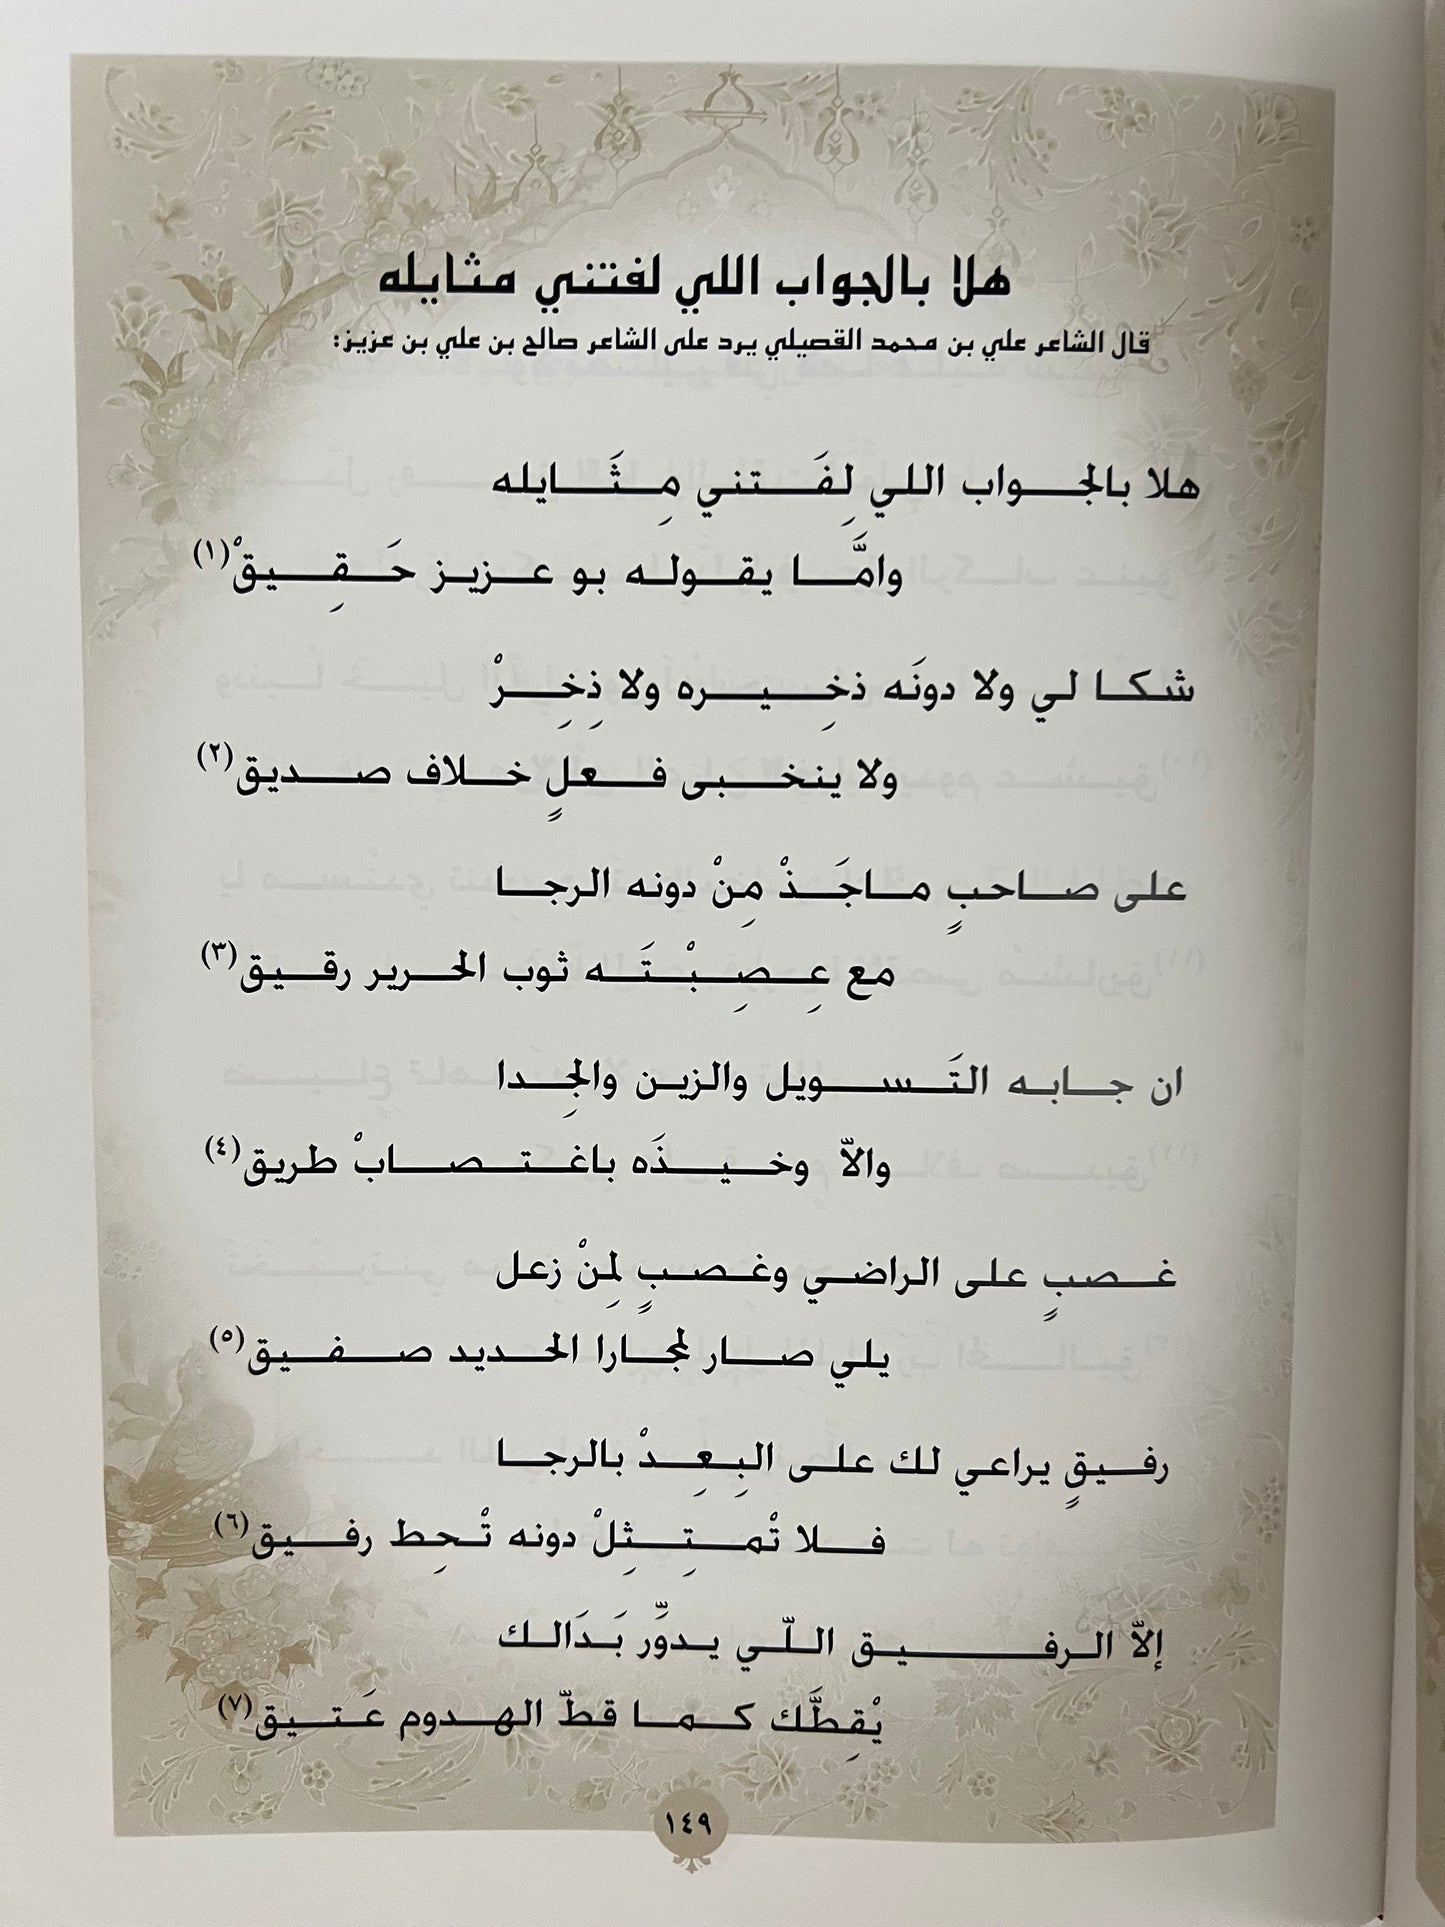 هلا بالجواب اللي لفتني مثايله
قال الشاعر علي بن محمد القصيلي يرد على الشاعر صالح بن علي بن عزيز:
هلا بالجواب اللي لِفَتني مِثَايله
وامَّا يقوله بو عزيز حَقِيقْ(١)
شكا لي ولا دونَه ذخِيره ولا ذِخِرْ
ولا ينخبى فعلٍ خلاف صديق(٢)
على صاحبٍ ماجَذْ مِنْ دونه الرجا
مع عِصِبْتَه ثوب الحرير رقيق(٣)
ان جابه التَسويل والزين والجِدا
والاّ وخيذَه باغتصابْ طريق(٤)
غصبٍ على الراضي وغصبٍ لمِنْ زعل
يلي صار لمجارا الحديد صفيق(٥)
رفيقٍ يراعي لك على البِعِدْ بالرجا
فلا تْمتِثِلْ دونه تْحِط رفيق(٦)
إلاّ الرفيق اللّي يدوَّر بَدَالك
يْقِطَّك كما قطّ الهدوم عَتيق(٧)
١٤٩